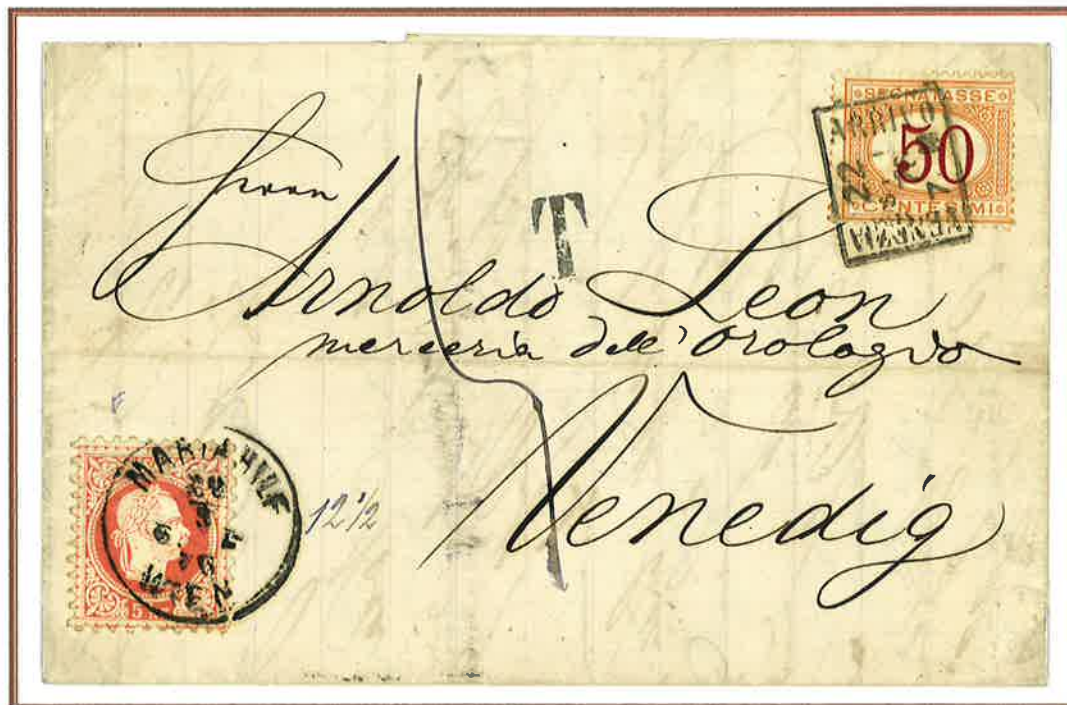 SEGNATASSE
50
CENTESIMI
ARRIVO
22
VENEZIA
T
Herrn
Arnoldo Leon
merceria dell'Orologio
Venedig
MARIAHILF
WIEN
12 1/2